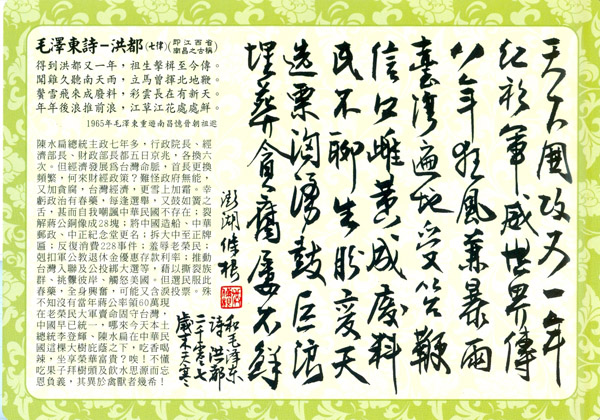 毛澤東詩－洪都(七律)(即江西省南昌之古稱)
得到洪都又一年，祖生擊楫至今傳。
聞雞久聽南天雨，立馬曾揮北地鞭。
鬢雪飛來成廢料，彩雲長在有新天。
年年後浪推前浪，江草江花處處鮮。
1965年毛澤東重遊南昌憶晉朝祖逖
陳水扁總統主政七年多，行政院長、經
濟部長、財政部長都五日京兆，各換六
次。但經濟發展為台灣命脈，首長更換
頻繁，何來財經政策？難怪政府無能，
又加貪腐，台灣經濟，更雪上加霜。幸
虧政治有春藥，每逢選舉，又鼓如簧之
舌，甚而自我嘲諷中華民國不存在；裂
解蔣公銅像成28塊；將中國造船、中華
郵政、中正紀念堂更名；拆大中至正牌
匾；反復消費228事件；羞辱老榮民；
剋扣軍公教退休金優惠存款利率；推動
台灣入聯及公投綁大選等，藉以撕裂族
群、挑釁彼岸、觸怒美國。但選民服此
春藥，全身興奮，可能又含淚投票。殊
不知沒有當年蔣公率領60萬現
在老榮民大軍賣命固守台灣，
中國早已統一，哪來今天本土
總統李登輝、陳水扁在中華民
國這棵大樹庇蔭之下，吃香喝
辣，坐享榮華富貴？唉！不懂
吃果子拜樹頭及飲水思源而忘
恩負義，其異於禽獸者幾希！
天下圍攻又一年
紅衫軍威世界傳
八年狂風兼暴雨
臺灣遍地受笞鞭
信口雌黃成廢料
民不聊生盼變天
選票洶湧鼓巨浪
埋葬貪腐屢不鮮
澎湖條根
和毛澤東
詩洪都
二千零零七
歲末天寒